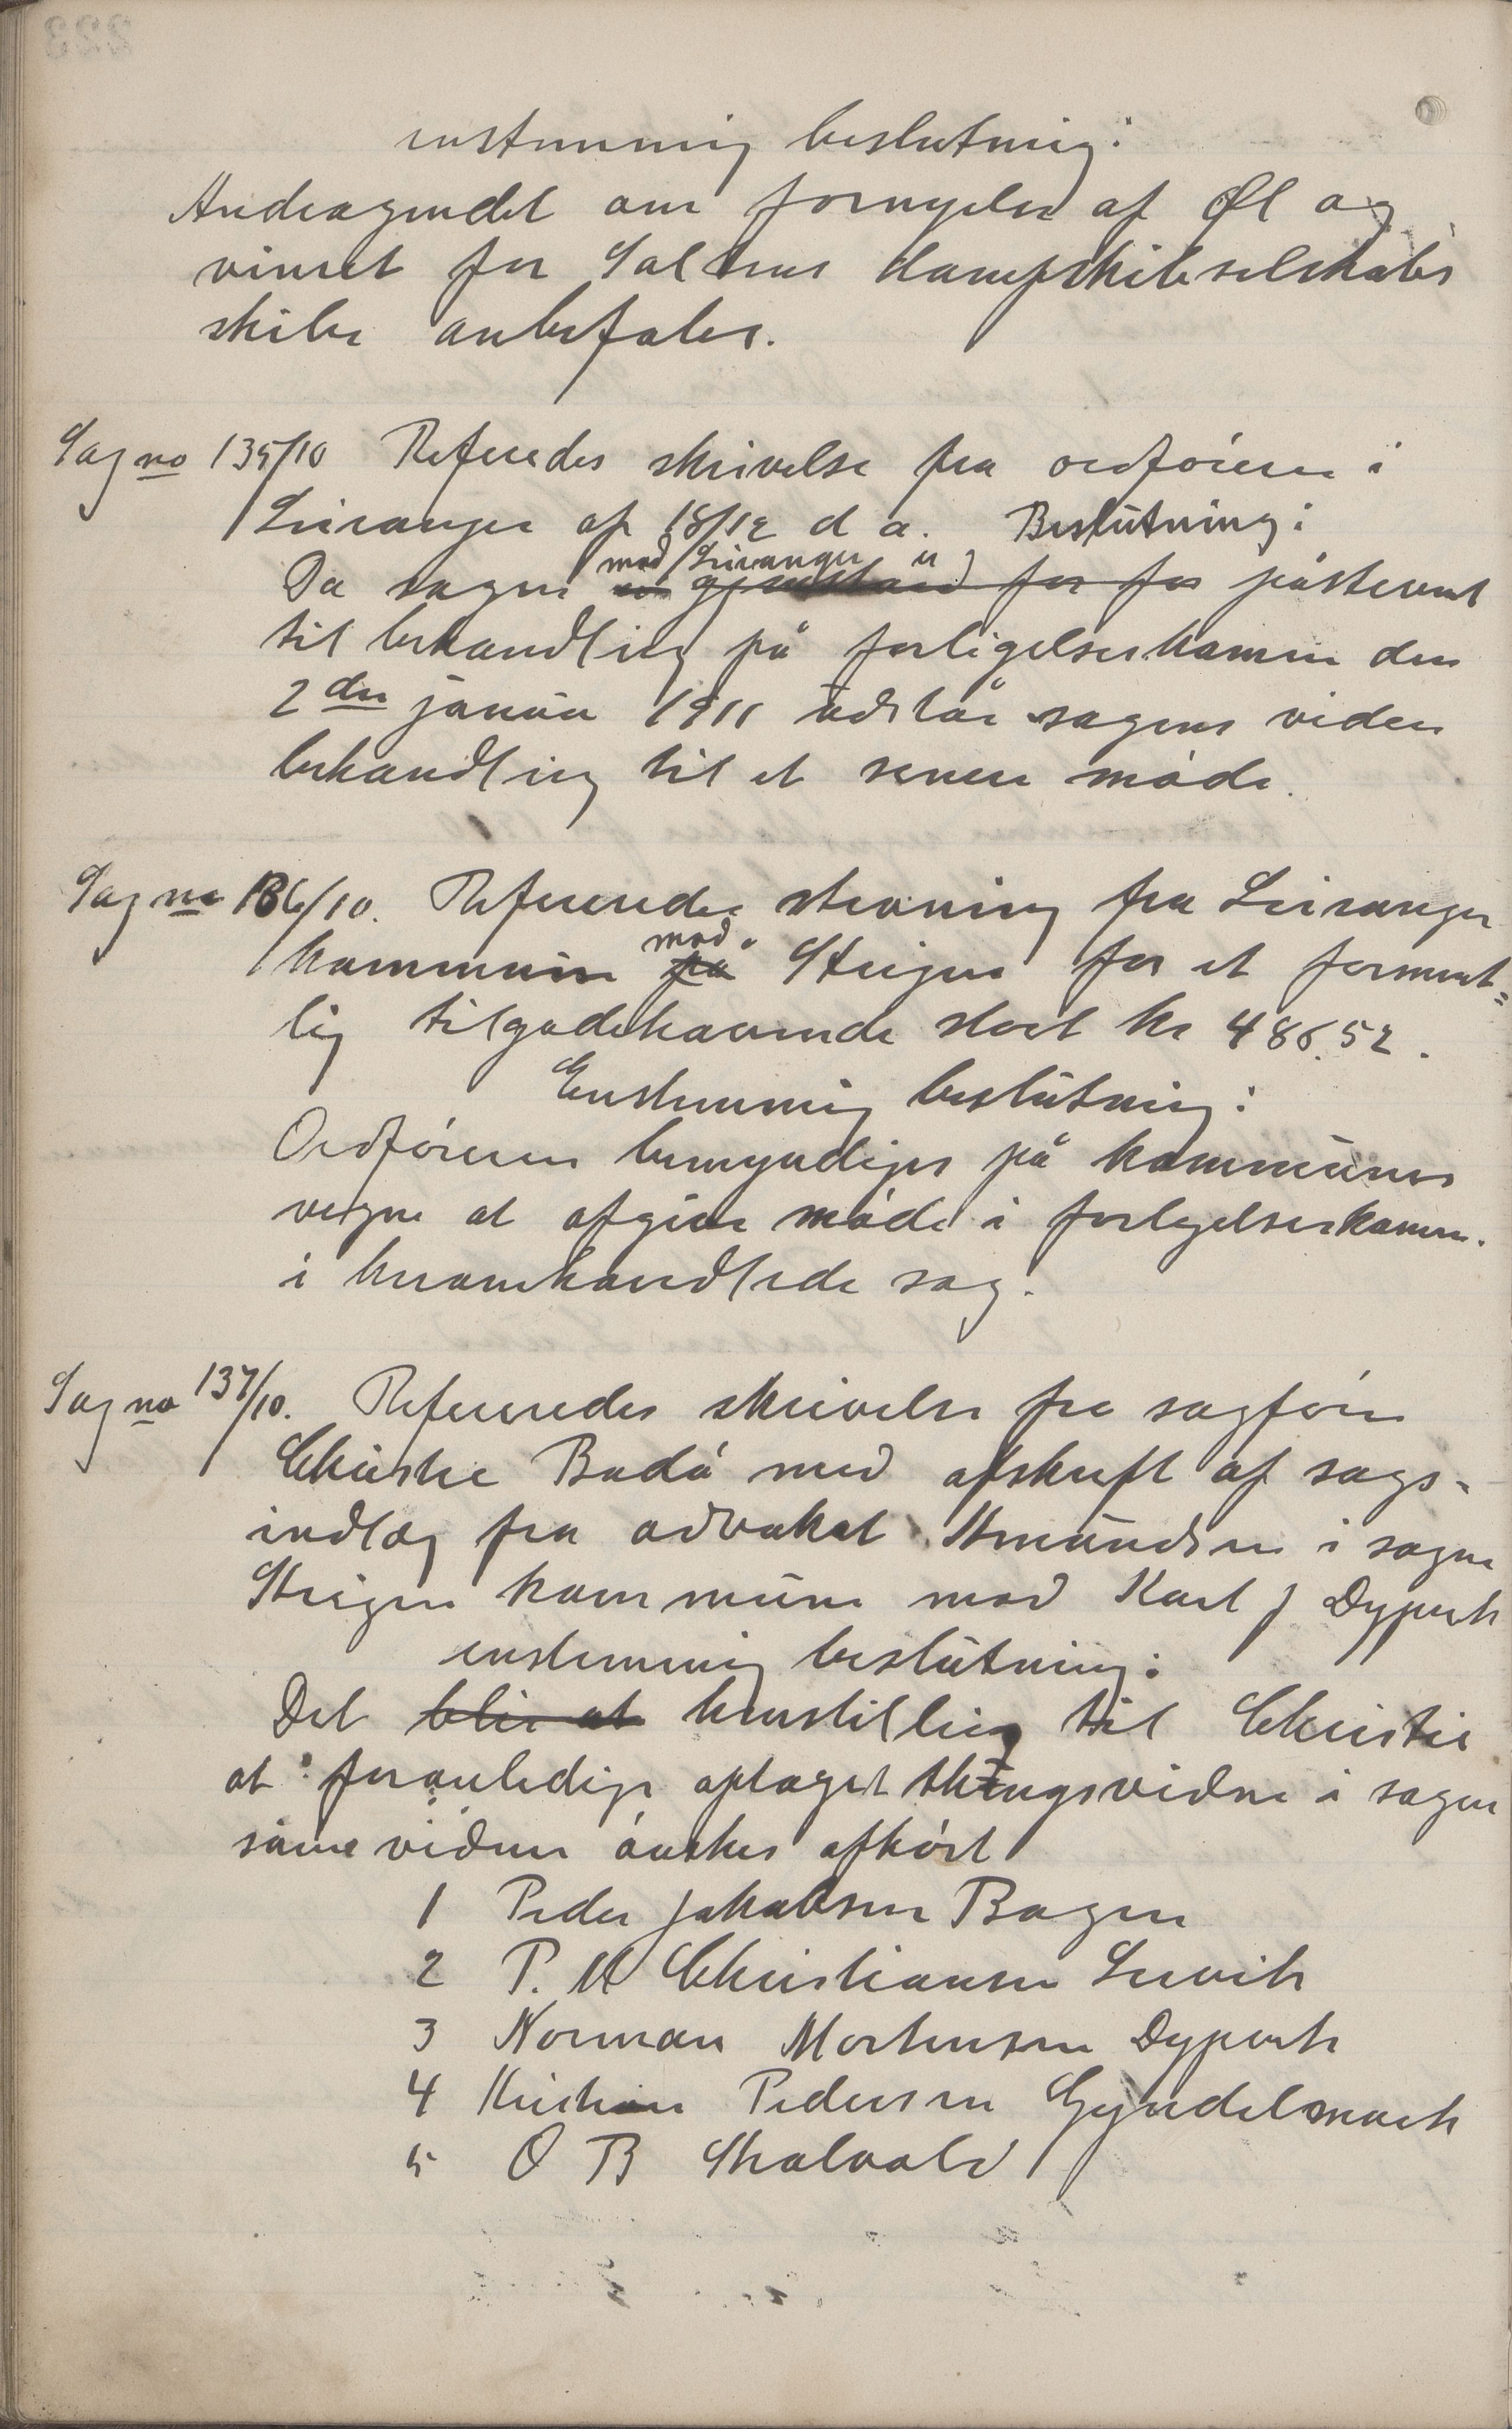 enstemmig beslutning:
Andragendet om fornyelse af Øl og
vinret for Saltens dampskibsselskabs
skibe anbefales.
Sag no 135/10 Referedes skrivelse fra ordføreren i
Leiranger af 18/12 d a. Beslutning:
mod Leiranger er
Da sagen er gjenstand for for påstevnt
til behandling på forligelseskommis den
2den januar 1911 udstår sagens videre
behandling til et senere møde.
Sag no 136/10. Refereredes stevning fra Leiranger
mod
kommune på Steigen for et forment=
lig tilgodehavende stort kr 486.52.
Enstemmig beslutning:
Ordføreren bemyndiges på kommunens
vegne at afgive møde i forligelseskomm.
i heromhandlede sag.
Sag no 137/10. Refereredes skrivelse fra sagfører
Christie Bodø med afskrift af sags-
indlæg fra advokat Amundsen i sagen
Steigen kommune mod Karl J Dypvik
enstemmig beslutning:
Det blir at henstilling til Christie
at foranledige optaget thingsvidne i sagen
som vidner ønskes afhørt
1 Peder Jakobsen Bogen
2 P. M Christiansen Leevik
3 Norman Mortensen Dypvik
4 Kristian Pedersen Gyndelsmark
5 O B Skalvold